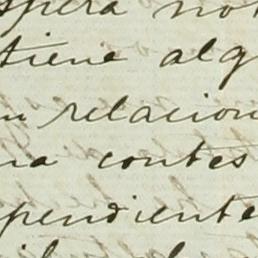 spera no
tiene alg
n relacion
na contes
pendiente